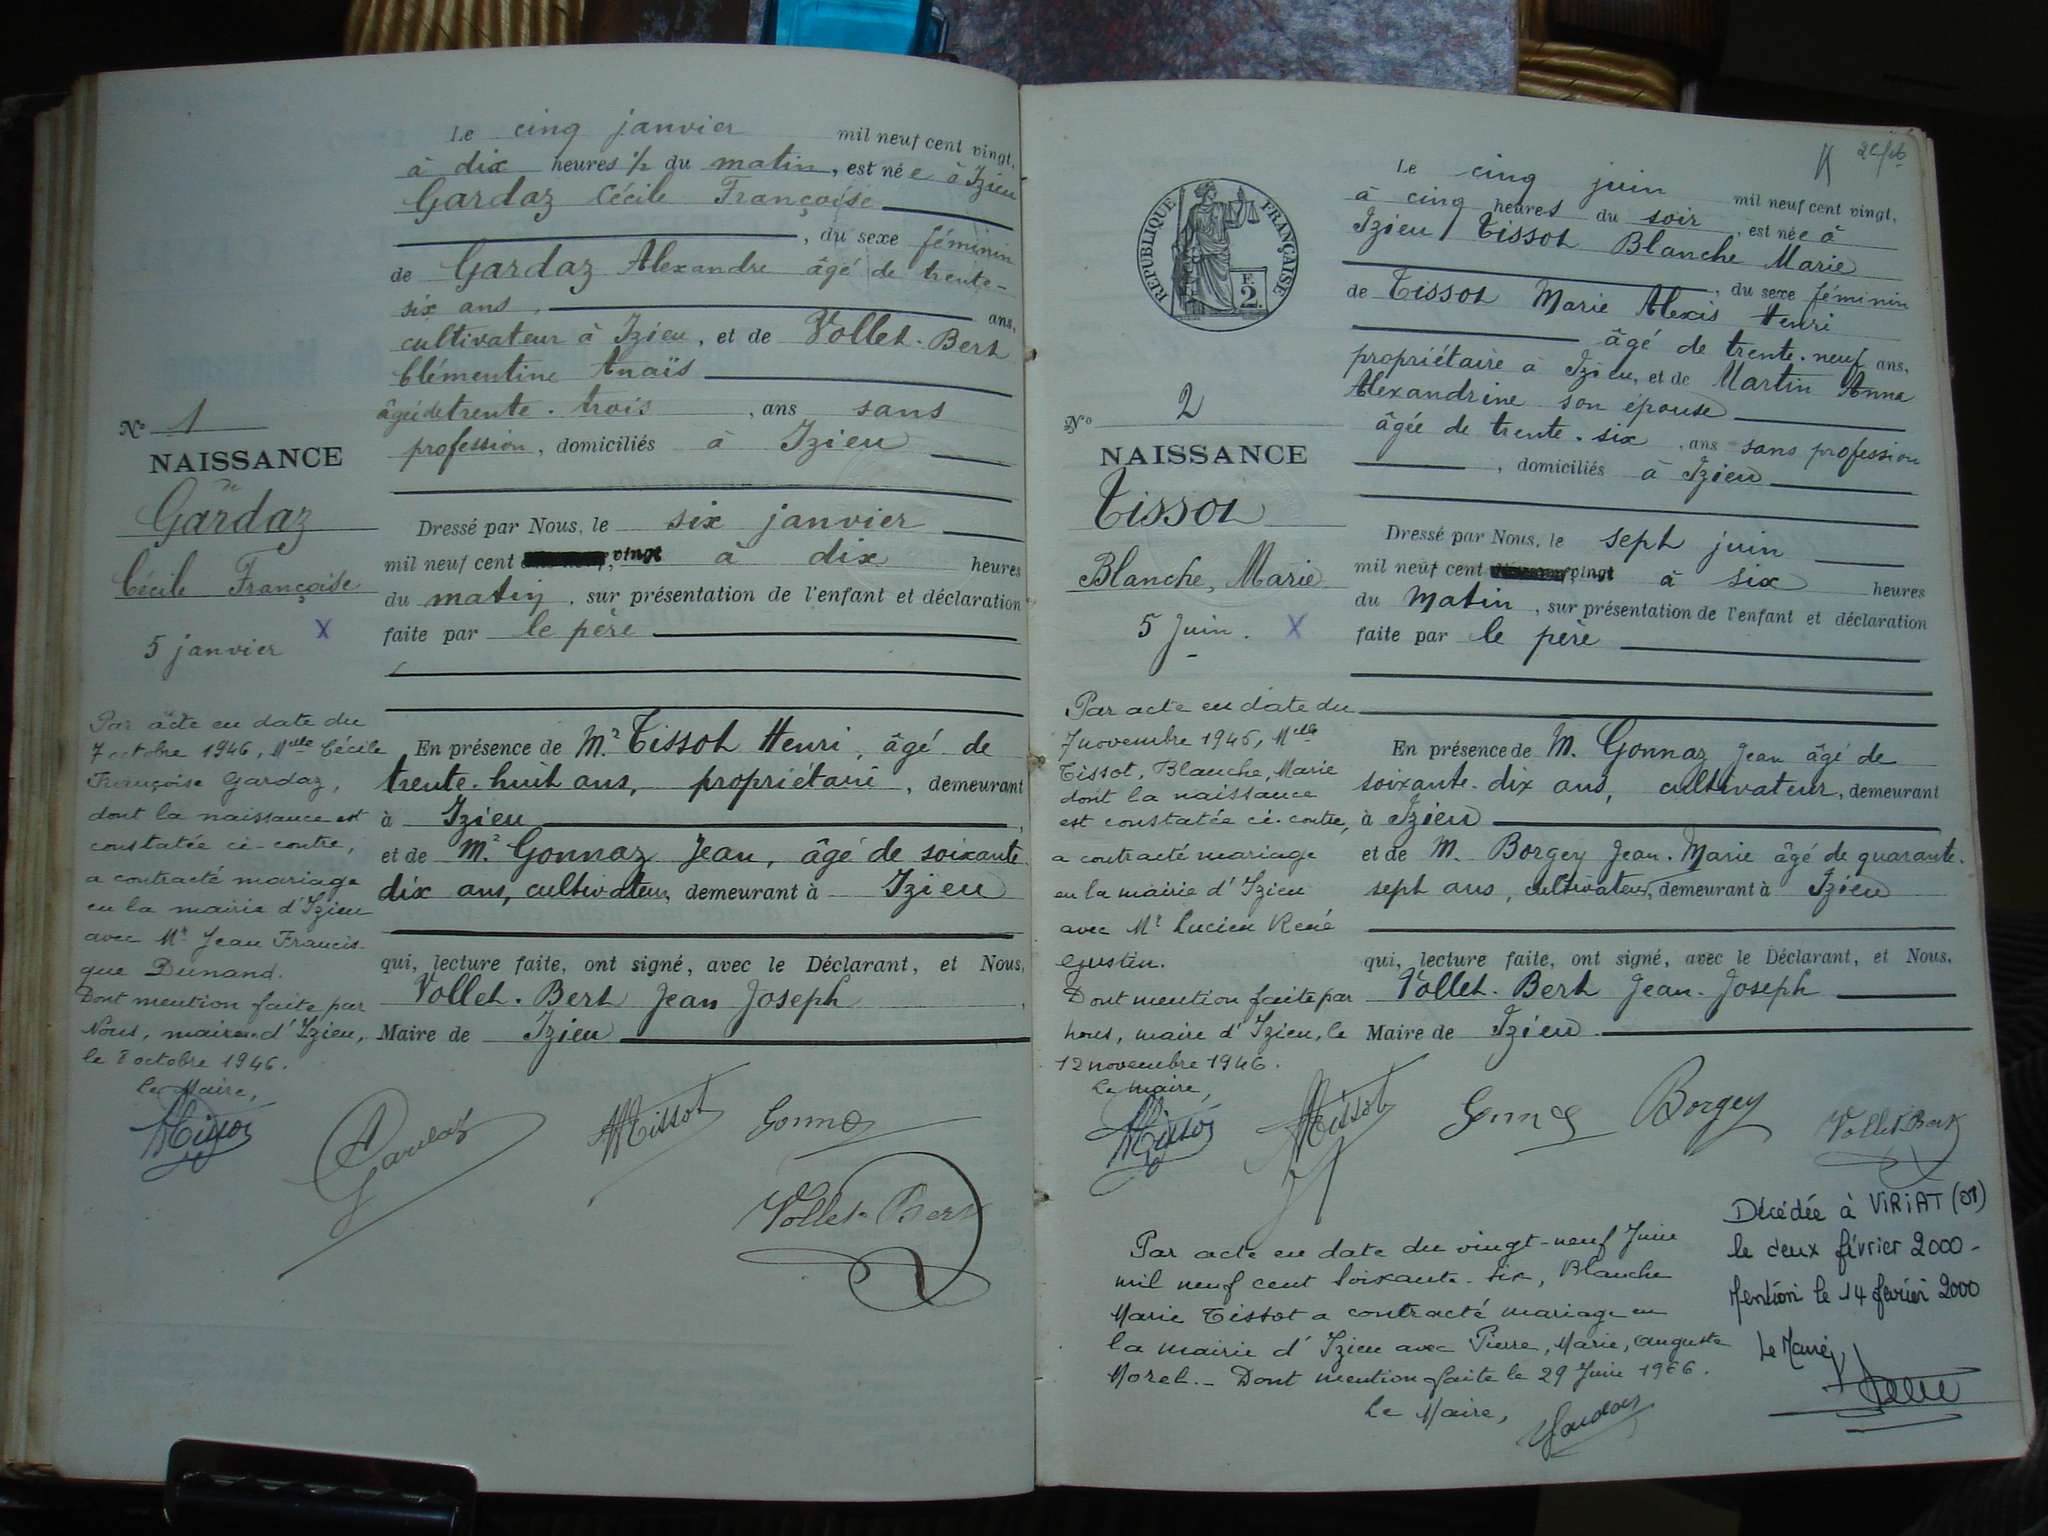 Le cinq janvier mil neuf cent vingt,
à dix heures ½ du matin, est née à Izieu
Gardaz Cécile Françoise
, du sexe féminin
de Gardaz Alexandre âgé de trente-
six ans, ans,
cultivateur à Izieu, et de Vollet-Bert
Clémentine Anaïs
âgée de trente-trois, ans sans
profession, domiciliés à Izieu
N° 1
NAISSANCE
de
Gardaz
Cécile Françoise
5 janvier X
Dressé par Nous, le six janvier
mil neuf cent vingt à dix heures
du matin, sur présentation de l'enfant et déclaration
faite par le père
En présence de M.r Tissot Henri, âgé de
trente-huit ans, propriétaire, demeurant
à Izieu,
et de M.r Gonnaz Jean, âgé de soixante
dix ans, cultivateur, demeurant à Izieu
qui, lecture faite, ont signé, avec le Déclarant, et Nous,
Vollet-Bert Jean Joseph,
Maire de Izieu
Par acte en date du
7 octobre 1946, Melle Cécile
Françoise Gardaz,
dont la naissance est
constatée ci-contre,
a contracté mariage
en la mairie d'Izieu
avec Mr Jean Francis-
que Dunand.
Dont mention faite par
Nous, maire d'Izieu,
le 8 octobre 1946.
Le Maire,
Tissot
Gardaz
Tissot
Gonnaz
Vollet-Bert
Le cinq juin mil neuf cent vingt,
à cinq heures du soir, est née à
Izieu Tissot Blanche Marie
, du sexe féminin
de Tissot Marie Alexis Henri
âgé de trente-neuf ans,
propriétaire à Izieu, et de Martin Anna
Alexandrine son épouse
âgée de trente-six, ans sans profession
, domiciliés à Izieu
RÉPUBLIQUE FRANÇAISE
F.
2.
N° 2
NAISSANCE
Tissot
Blanche, Marie
5 Juin. X
Dressé par Nous, le sept juin
mil neuf cent vingt à six heures
du Matin, sur présentation de l'enfant et déclaration
faite par le père
En présence de M. Gonnaz Jean âgé de
soixante-dix ans, cultivateur, demeurant
à Izieu
et de M. Borgey Jean-Marie âgé de quarante-
sept ans, cultivateur, demeurant à Izieu
qui, lecture faite, ont signé, avec le Déclarant, et Nous,
Vollet-Bert Jean-Joseph
Maire de Izieu
Par acte en date du
7 novembre 1946, Melle
Tissot, Blanche, Marie
dont la naissance
est constatée ci-contre,
a contracté mariage
en la mairie d'Izieu
avec Mr Lucien René
Dont mention faite par
nous, maire d'Izieu, le
12 novembre 1946.
Le maire,
Tissot
Tissot
Gonnaz
Borgey
Vollet-Bert
Par acte en date du vingt-neuf Juin
mil neuf cent soixante-six, Blanche
Marie Tissot a contracté mariage en
la mairie d'Izieu avec Pierre, Marie, Auguste
Morel. - Dont mention faite le 29 Juin 1966.
Le Maire,
Décédée à VIRIAT (01)
le deux février 2000 -
Mention le 14 février 2000
Le Maire,